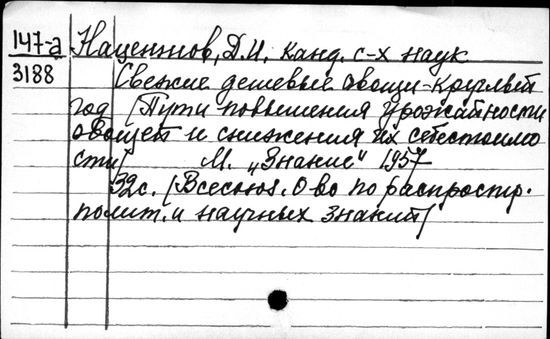 147-а Нацентов, Д.И. канд. с-х наук
3188 Свежие дешевые овощи-круглый
год [Пути повышения урожайности
овощей и снижения их себестоимо
сти] М. „Знание" 1957
32с. [Всесоюз. О-во по распростр.
полит. и научных знаний]